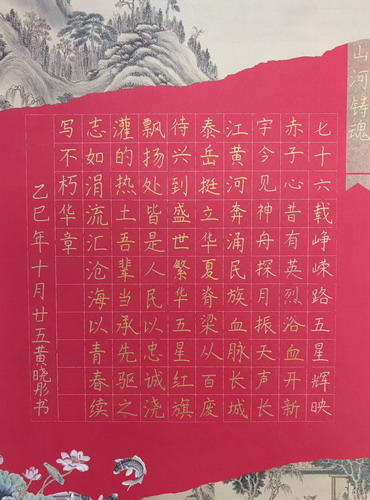 山河铸魂
七十六载峥嵘路五星辉映
赤子心昔有英烈浴血开新
宇今见神舟探月振天声长
江黄河奔涌民族血脉长城
泰岳挺立华夏脊梁从百废
待兴到盛世繁华五星红旗
飘扬处皆是人民以忠诚浇
灌的热土吾辈当承先驱之
志如涓流汇沧海以青春续
写不朽华章
乙巳年十月廿五黄晓彤书